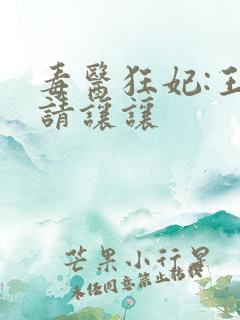 毒醫狂妃:王
請讓讓
芒果小行星
未任同意禁止轉載